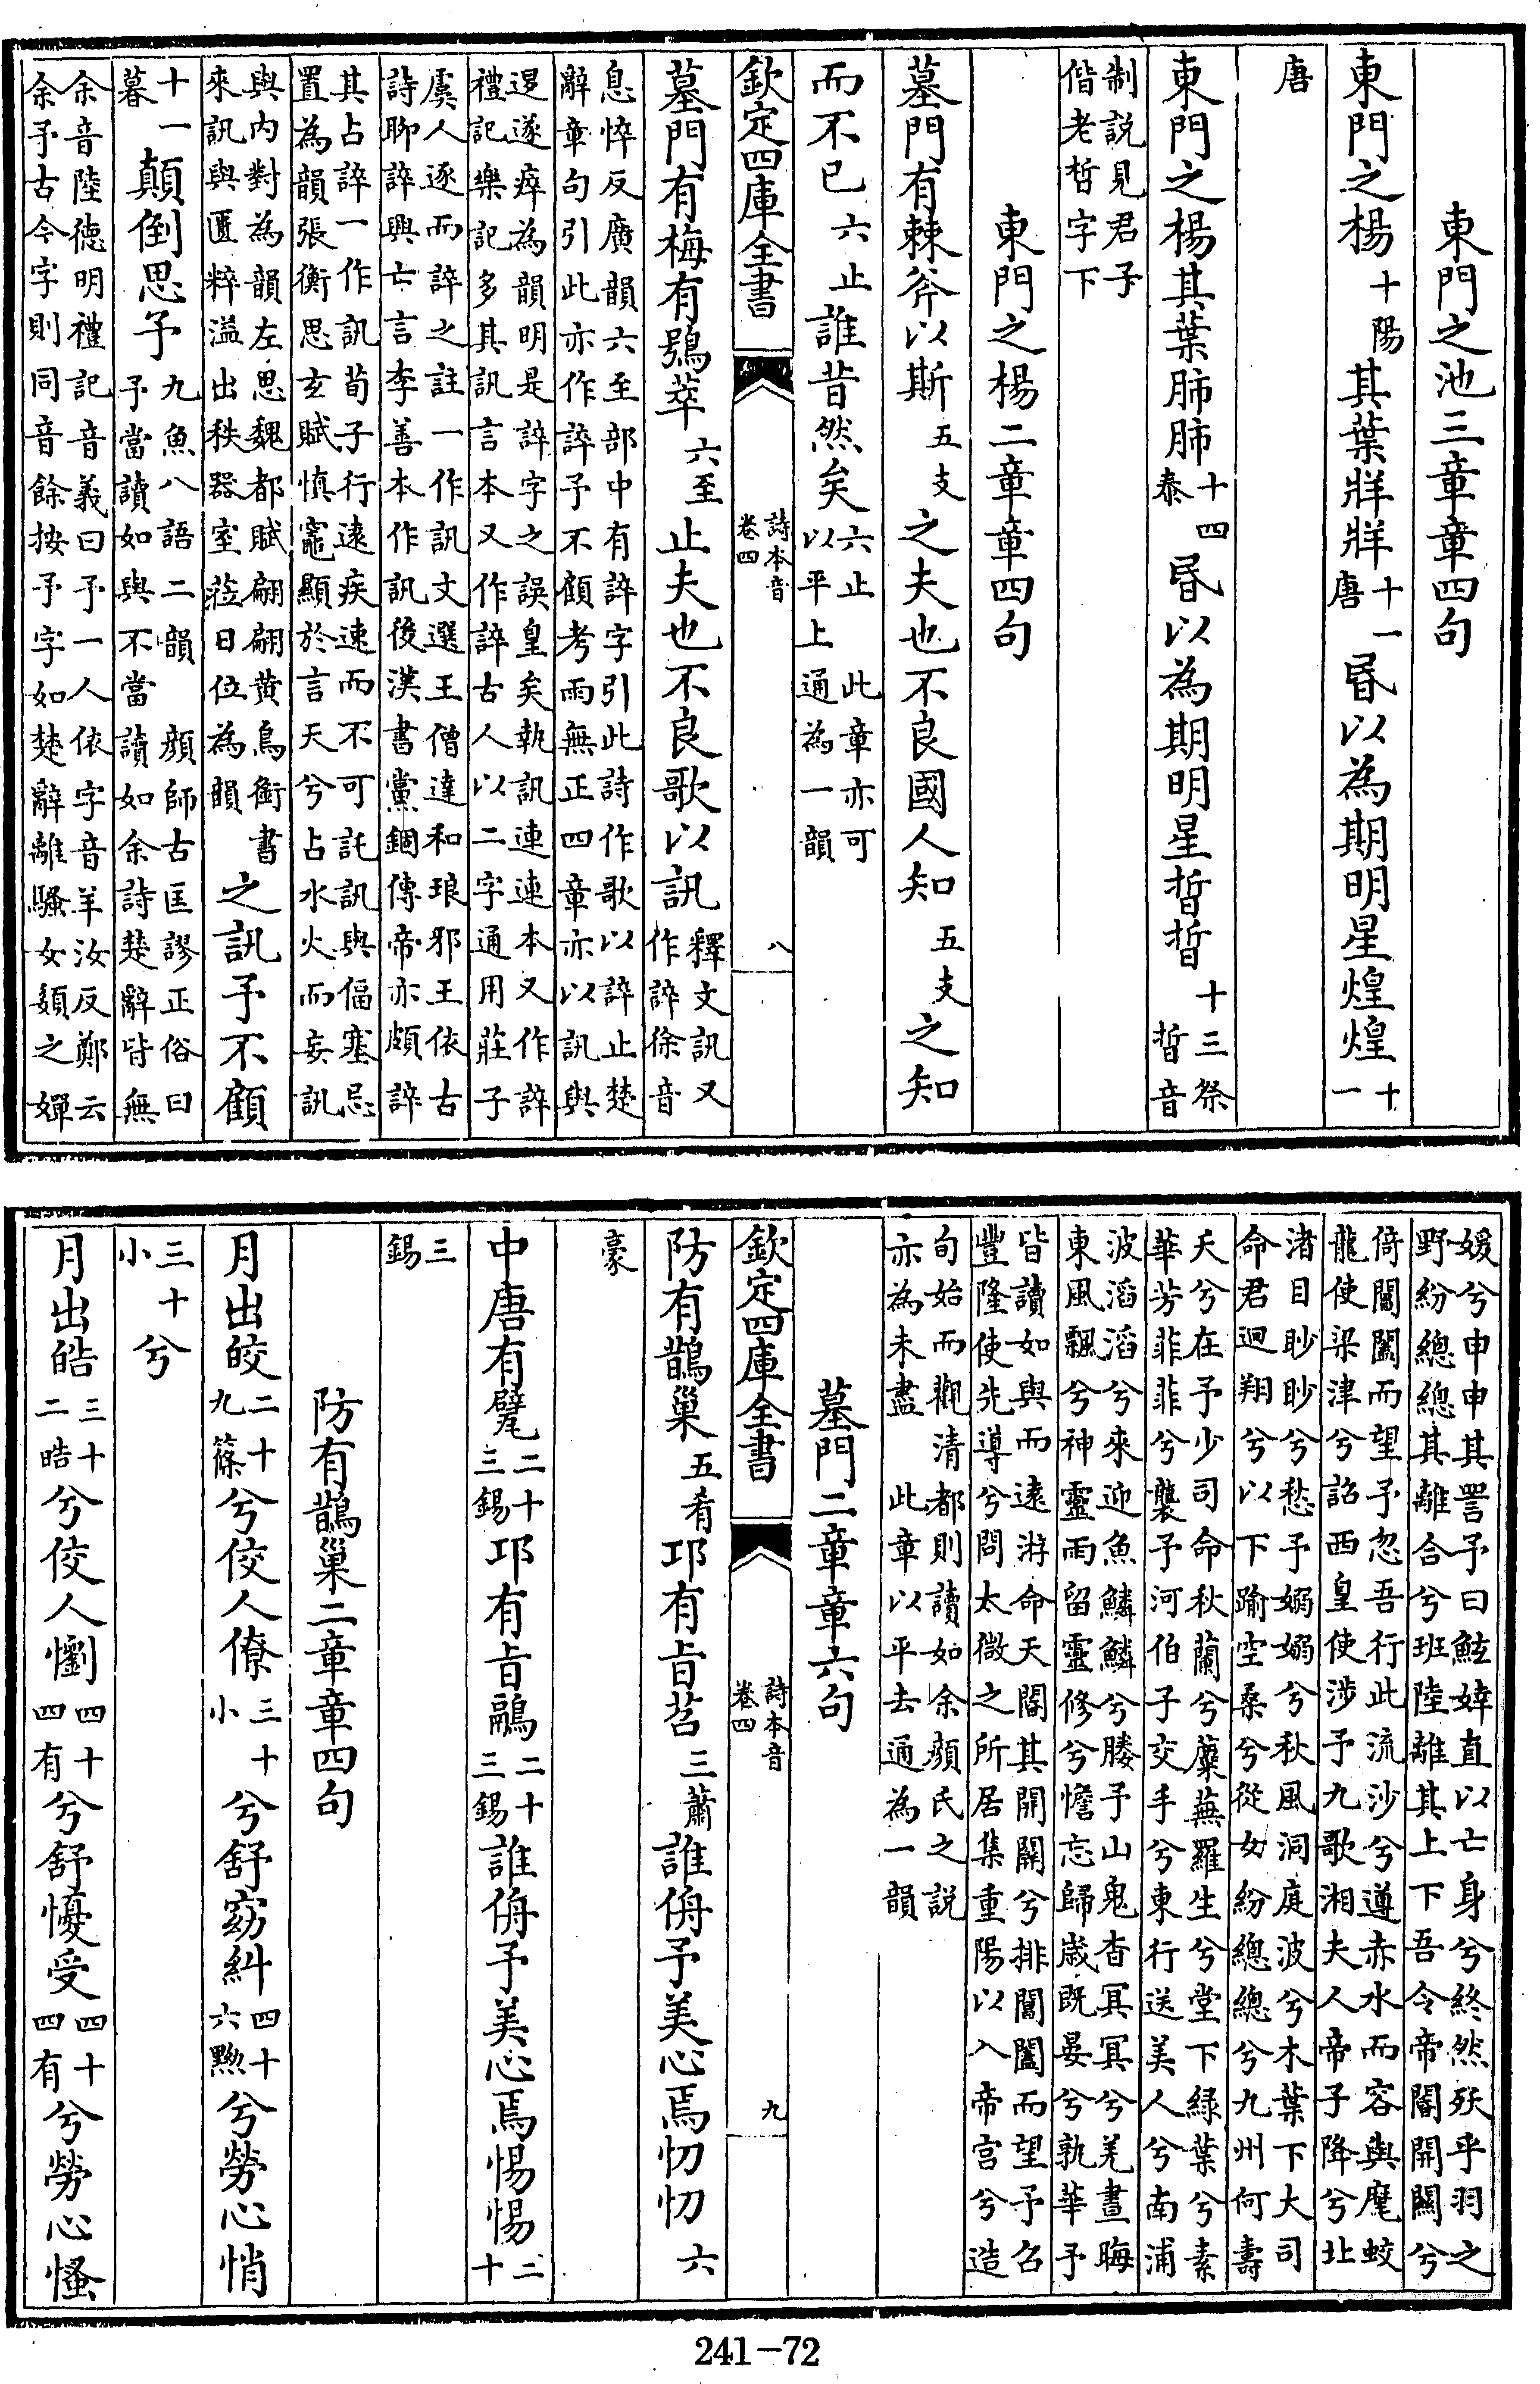 東門之池三章章四句
東門之楊十陽其葉牂牂十一唐昬以為期明星煌煌十一
唐
東門之楊其葉肺肺十四泰昬以為期明星晢晢十三祭晢音
制説見君子偕老晢字下
東門之楊二章章四句
墓門有棘斧以斯五支之夫也不良國人知五支之知
而不已六止誰昔然矣六止此章亦可以平上通為一韻
欽定四庫全書 詩本音卷四 八
墓門有梅有鴞萃六至止夫也不良歌以訊釋文訊又作誶徐音
息悴反廣韻六至部中有誶字引此詩作歌以誶止楚
辭章句引此亦作誶予不顧考雨無正四章亦以訊與
退遂瘁為韻明是誶字之誤皇矣執訊連連本又作誶
禮記樂記多其訊言本又作誶古人以二字通用莊子
虞人逐而誶之註一作訊文選王僧達和琅邪王依古
詩聊誶興亡言李善本作訊後漢書黨錮傳帝亦頗誶
其占誶一作訊荀子行逺疾速而不可託訊與偪塞忌
置為韻張衡思玄賦慎竈顯於言天兮占水火而妄訊
與内對為韻左思魏都賦翩翩黄鳥銜書
來訊與匱粹溢出秩器室蒞日位為韻之訊予不顧
十一暮顛倒思予九魚八語二韻 顔師古匡謬正俗曰
予當讀如與不當讀如余詩楚辭皆無
余音陸徳明禮記音義曰予一人依字音羊汝反鄭云
余予古今字則同音餘按予字如楚辭離騷女嬃之嬋
媛兮申申其詈予曰鮌婞直以亡身兮終然殀乎羽之
野紛總總其離合兮班陸離其上下吾令帝閽開關兮
倚閶闔而望予忽吾行此流沙兮遵赤水而容與麾蛟
龍使梁津兮詔西皇使涉予九歌湘夫人帝子降兮北
渚目眇眇兮愁予嫋嫋兮秋風洞庭波兮木葉下大司
命君迴翔兮以下踰空桑兮從女紛總總兮九州何壽
夭兮在予少司命秋蘭兮麋蕪羅生兮堂下緑葉兮素
華芳菲菲兮襲予河伯子交手兮東行送美人兮南浦
波滔滔兮來迎魚鱗鱗兮媵予山鬼杳冥冥兮羌晝晦
東風飄兮神靈雨留靈修兮憺忘歸嵗既晏兮孰華予
皆讀如與而逺游命天閽其開關兮排閶闔而望予召
豐隆使先導兮問太微之所居集重陽以入帝宫兮造
旬始而觀清都則讀如余顔氏之説
亦為未盡 此章以平去通為一韻
墓門二章章六句
欽定四庫全書 詩本音卷四 九
防有鵲巢五肴邛有㫖苕三蕭誰侜予美心焉忉忉六
豪
中唐有甓二十三錫邛有㫖鷊二十三錫誰侜予美心焉惕惕二十
三錫
防有鵲巢二章章四句
月出皎二十九篠兮佼人僚三十小兮舒窈糾四十六黝兮勞心悄
三十小兮
月出皓三十二皓兮佼人懰四十四有兮舒懮受四十四有兮勞心慅
241-72